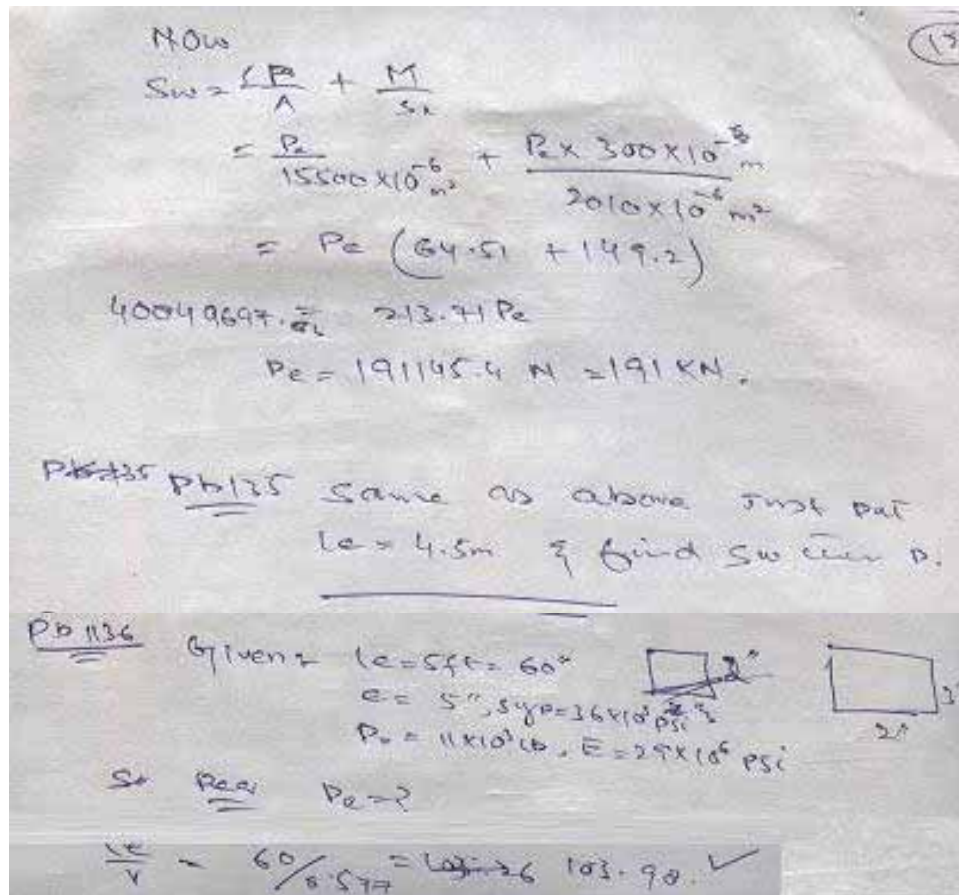 Now
Sw = ΣP/A + M/Sx
= Pe/15500×10^-6 m² + Pe × 300×10^-3 m/2010×10^-6 m²
= Pe (64.51 + 149.2)
40049697. = 213.71 Pe
Pe = 191145.4 N = 191 KN.
Pb135 Same as above Just put
le = 4.5m & find Sw P.
Pb 1136
Given le = 5ft = 60"
e = 5", Syp = 36×10³ psi
Po = 11×10³ lb, E = 29×10⁶ psi
3"
2"
Pe = ?
le/r = 60/0.577 = 103.98. ✓